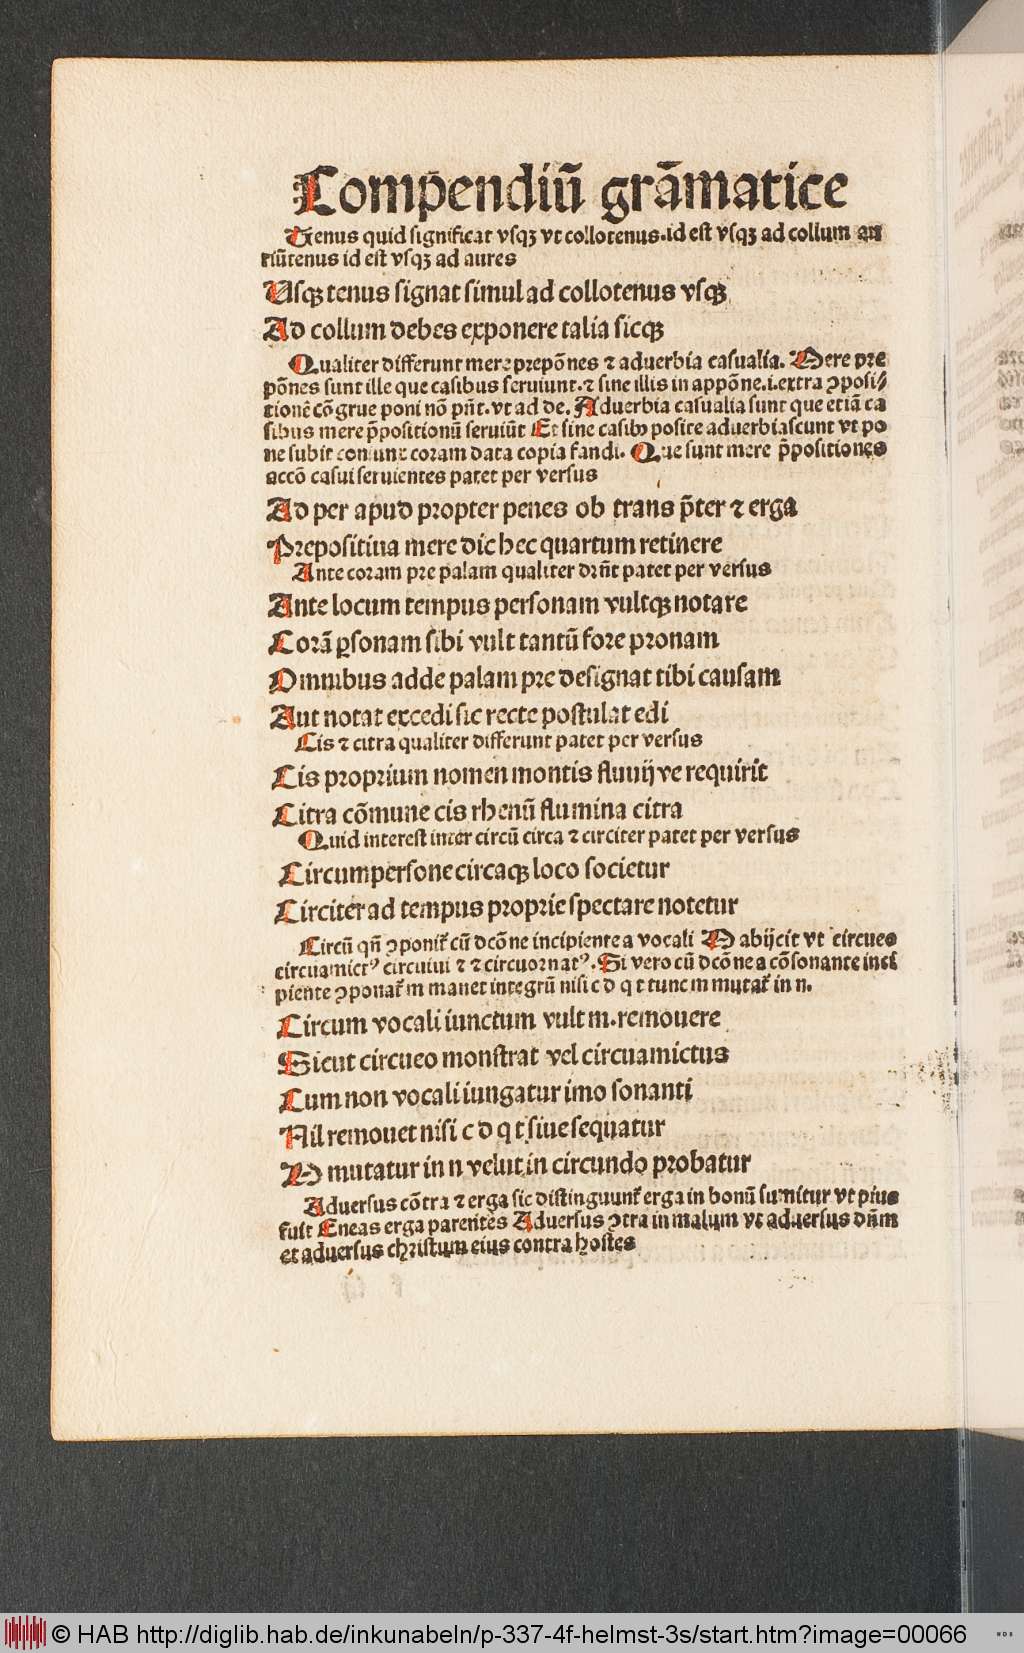 Compendiū grāmatice
Tenus quid significat vsqꝫ vt collotenus.id est vsqꝫ ad collum au
riūtenus id est vsqꝫ ad aures
Usqꝫ tenus signat simul ad collotenus vsqꝫ
Ad collum debes exponere talia sicqꝫ
Qualiter differunt mere prepōnes ⁊ aduerbia casualia. Mere pre
pōnes sunt ille que casibus seruiunt.⁊ sine illis in appōne.i.extra ꝯposi⸗
tionē cōgrue poni nō pn̄t.vt ad de. Aduerbia casualia sunt que etiā ca
sibus mere p̄positionū seruiūt Et sine casibꝫ posite aduerbiascunt vt po
ne subit coram data copia fandi. Que sunt mere p̄positiones
accō casui seruientes patet per versus
Ad per apud propter penes ob trans p̄ter ⁊ erga
Prepositiua mere dic hec quartum retinere
Ante coram pre palam qualiter drn̄t patet per versus
Ante locum tempus personam vultqꝫ notare
Corā ꝑsonam sibi vult tantū fore pronam
Omnibus adde palam pre designat tibi causam
Aut notat excedi sic recte postulat edi
Cis ⁊ citra qualiter differunt patet per versus
Cis proprium nomen montis fluuij ve requirit
Citra cōmune cis rhenū flumina citra
Quid interest inter circū circa ⁊ circiter patet per versus
Circumpersone circaqꝫ loco societur
Circiter ad tempus proprie spectare notetur
Circū qn̄ ꝯponit̄ cū dcōne incipiente a vocali M abijcit vt circueo
circuamictꝰ circuiui ⁊ ⁊ circuornatꝰ. Si vero cū dcōne a cōsonante inci
piente ꝯponat̄ m manet integrū nisi c d q t tunc m mutat̄ in n.
Circum vocali iunctum vult m.remouere
Sicut circueo monstrat vel circuamictus
Cum non vocali iungatur imo sonanti
Nil remouet nisi c d q t siue sequatur
M mutatur in n velut in circundo probatur
Aduersus cōtra ⁊ erga sic distinguunt̄ erga in bonū sumitur vt pius
fuit Eneas erga parentes Aduersus ꝯtra in malum vt aduersus dn̄m
et aduersus christum eius contra hostes
© HAB http://diglib.hab.de/inkunabeln/p-337-4f-helmst-3s/start.htm?image=00066